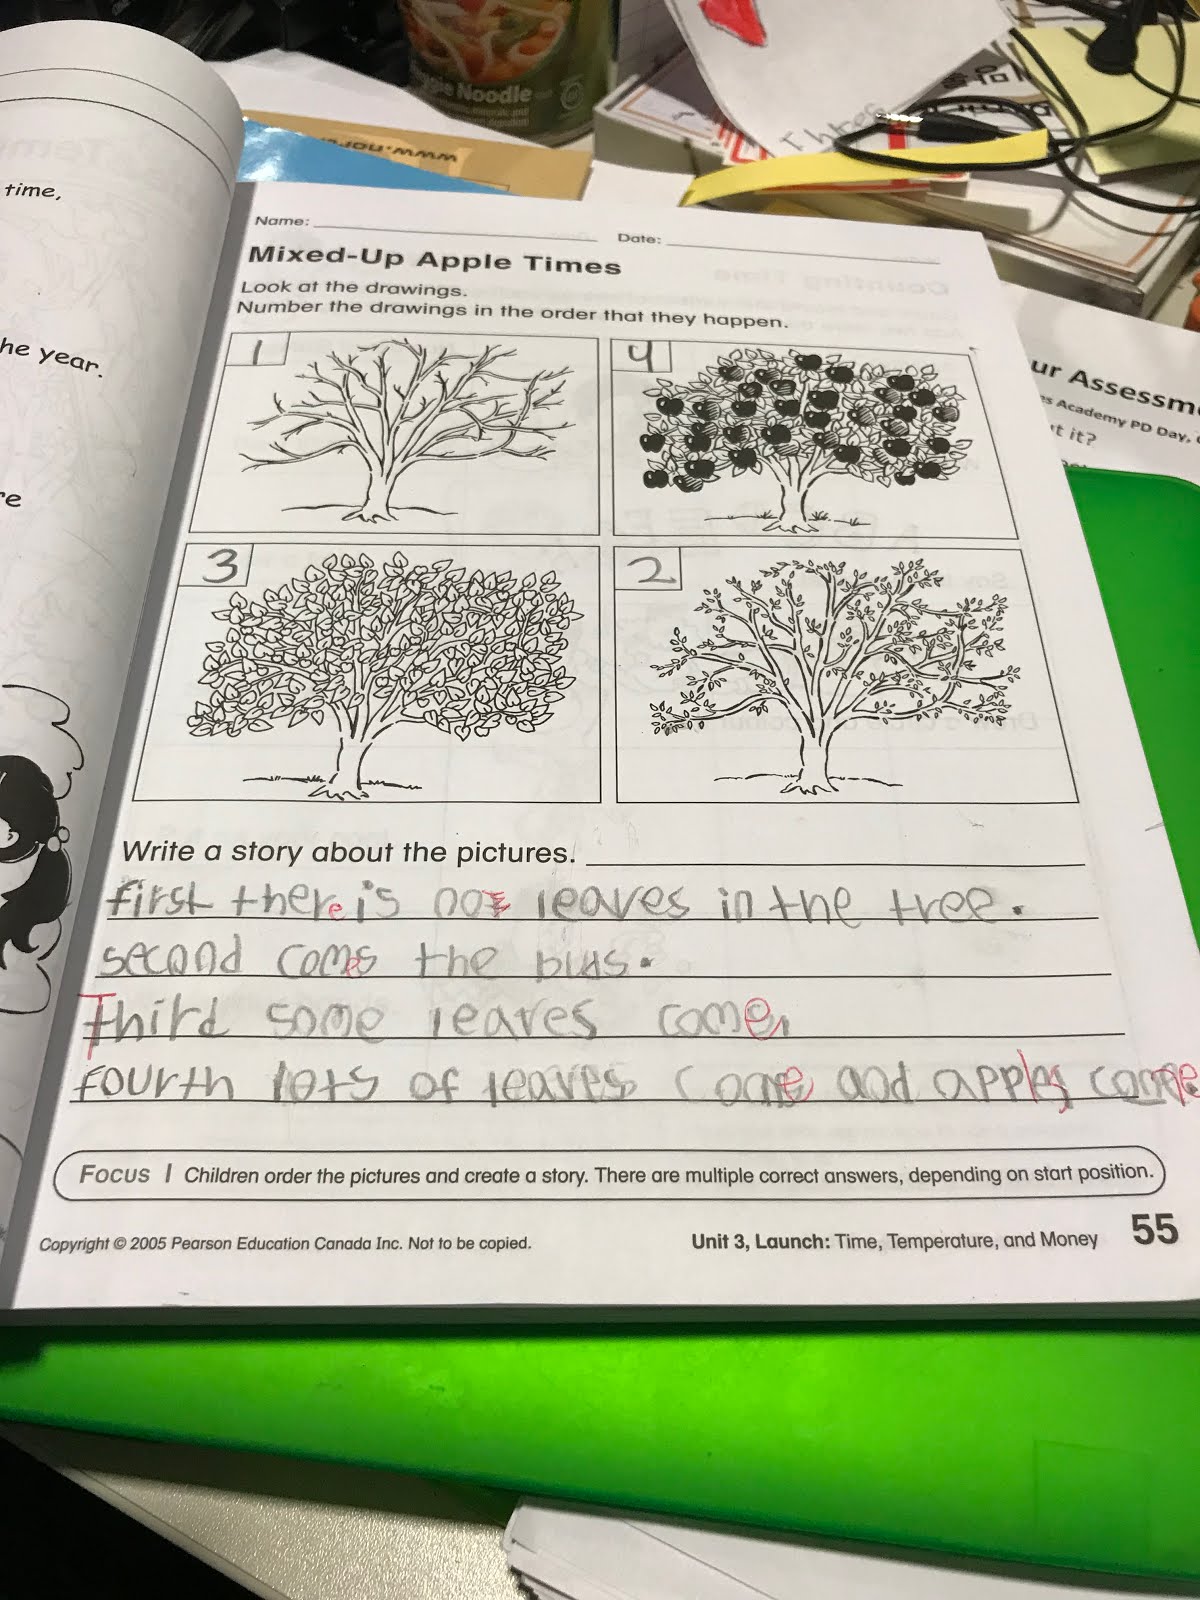 Veggie Noodle
www.
time,
he year.
re
Name:
Date:
Mixed-Up Apple Times
Look at the drawings.
Number the drawings in the order that they happen.
1
4
3
2
Write a story about the pictures.
first there is no leaves in the tree.
second comes the buds.
Third some leaves come.
fourth lots of leaves come and apples come
FOCUS | Children order the pictures and create a story. There are multiple correct answers, depending on start position.
Copyright © 2005 Pearson Education Canada Inc. Not to be copied.
Unit 3, Launch: Time, Temperature, and Money
55
ur Assessm
es Academy PD Day,
t it?